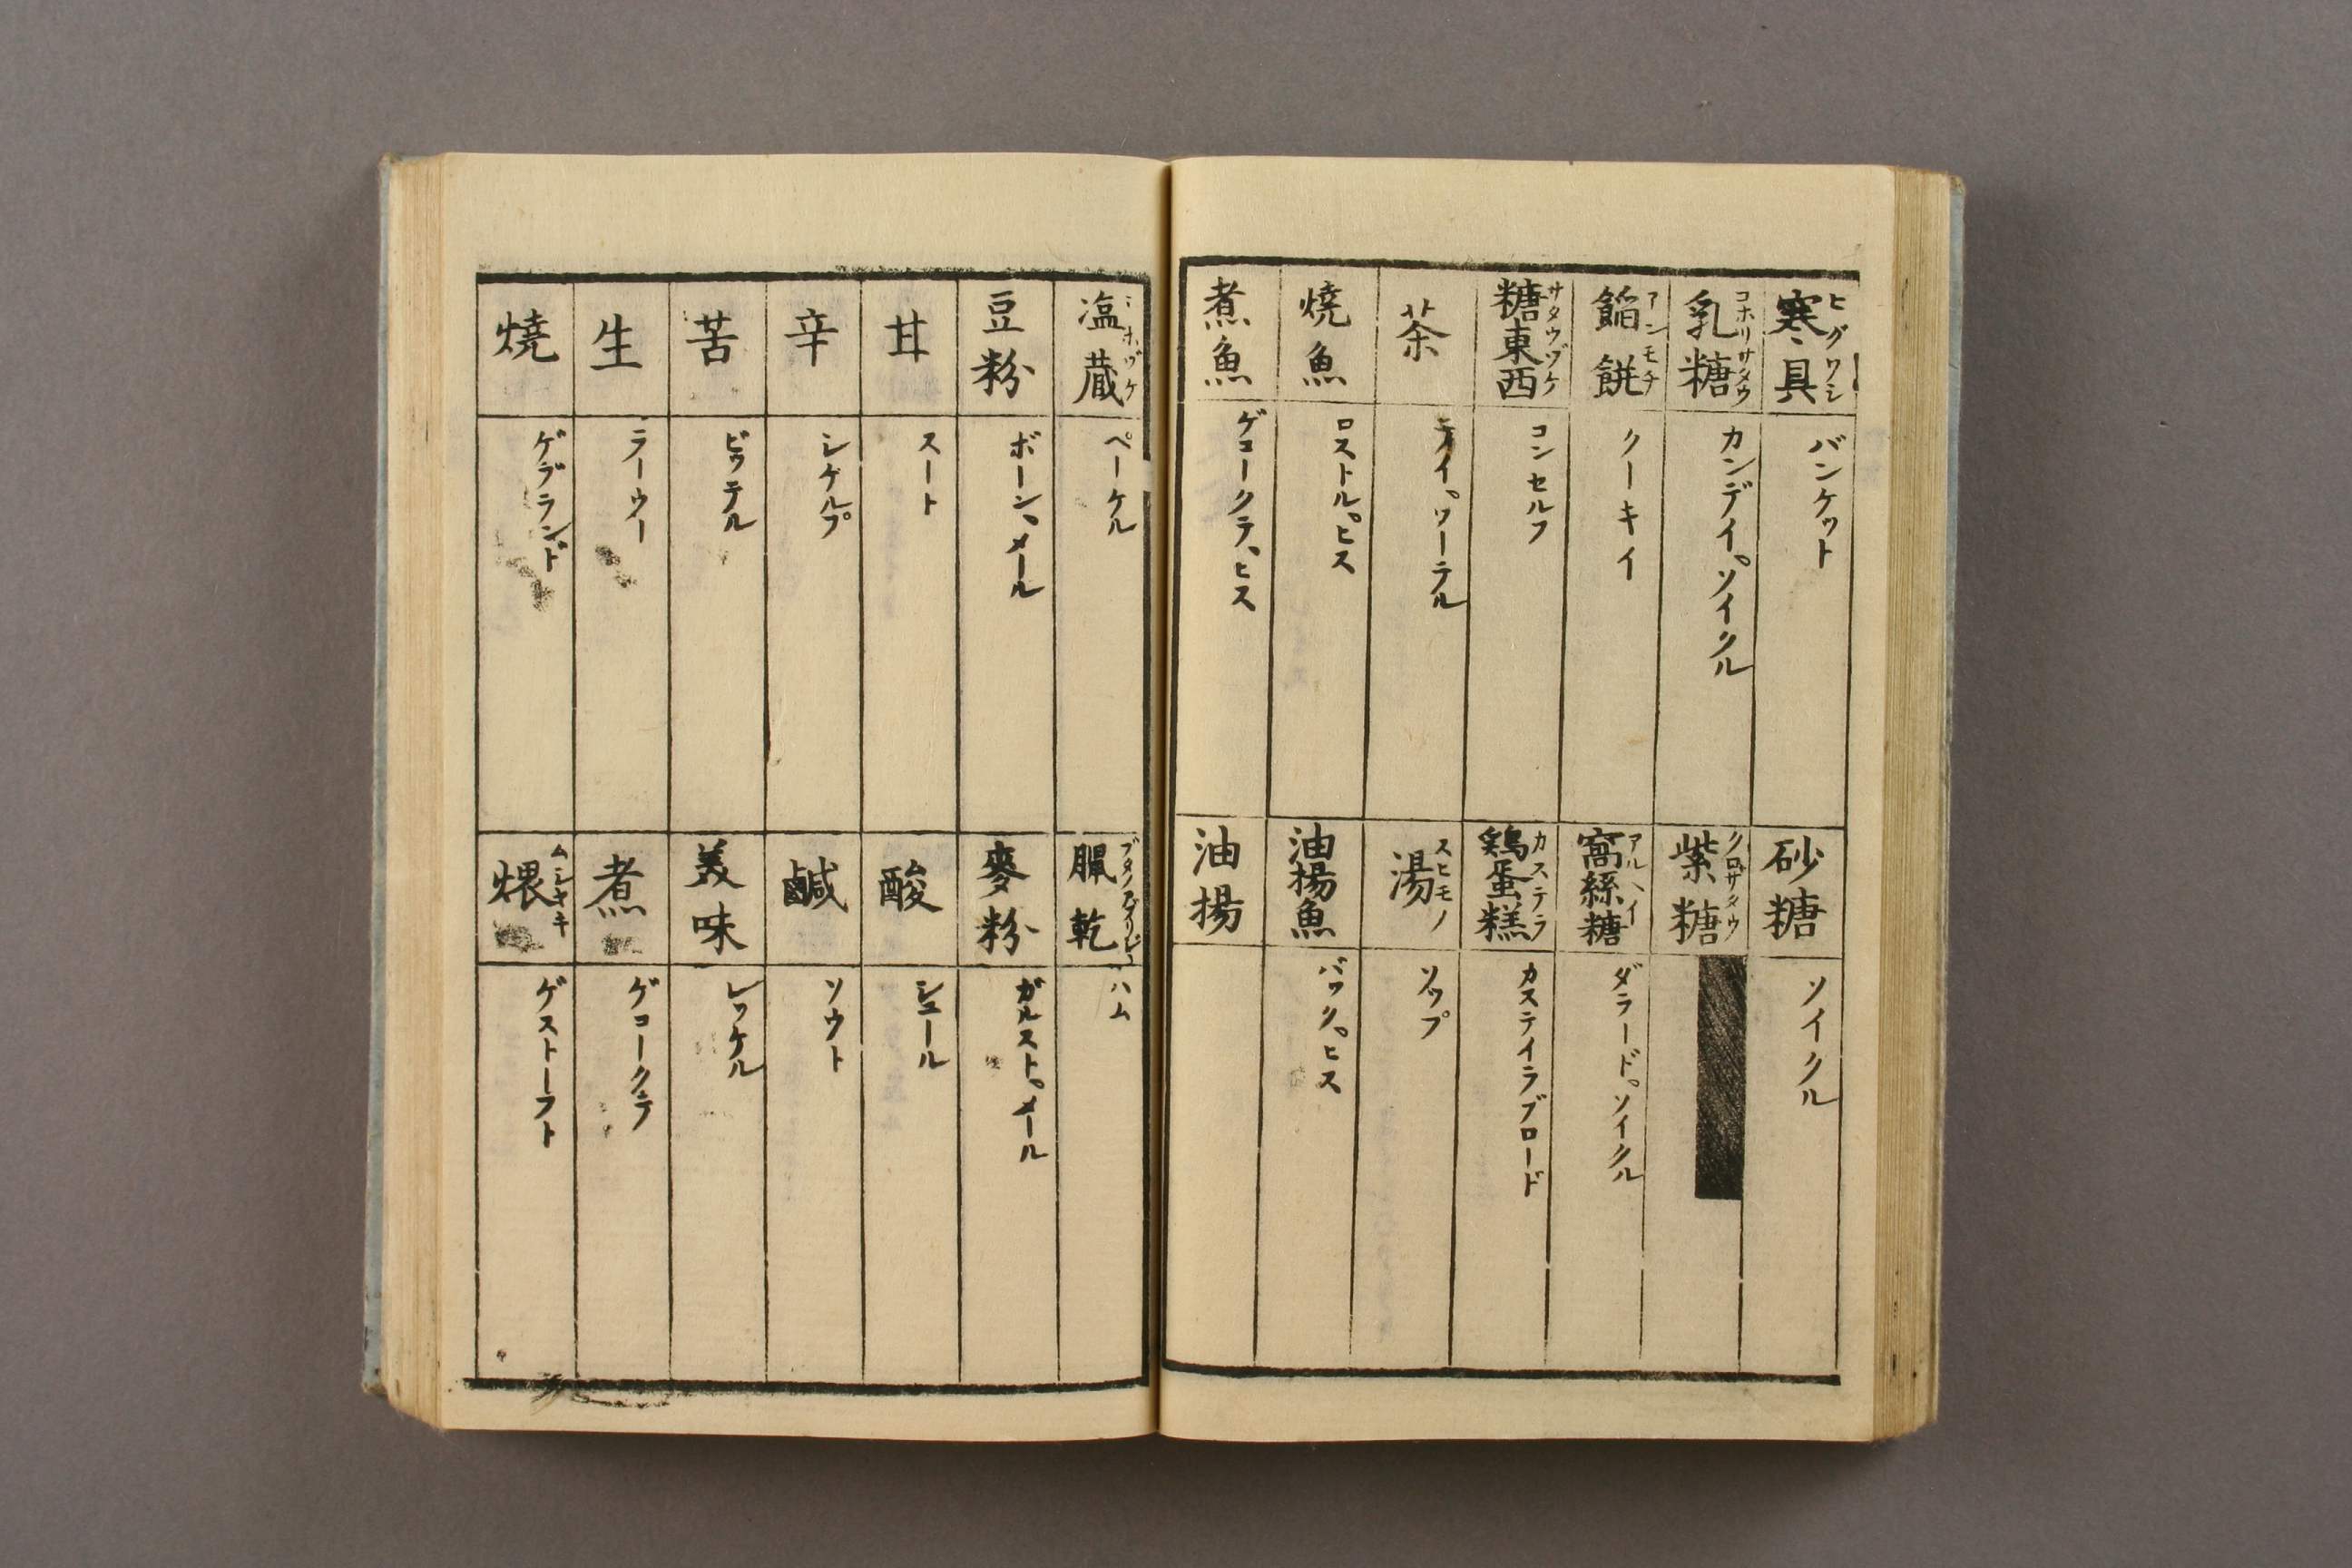 寒具 ヒグワシ
バンケット
砂糖
ソイクル
乳糖 コホリサタウ
カンデイ。ソイクル
紫糖 クロサタウ
餡餅 アンモチ
クーキイ
窩絲糖 アルヘイ
ダラード。ソイクル
糖東西 サタウヅケ
コンセルフ
鶏蛋糕 カステラ
カステイラブロード
茶
テイ。ワーテル
湯 スヒモノ
ソップ
焼魚
ロストル。ヒス
油揚魚
バック。ヒス
煮魚
ゲコークテ、ヒス
油揚
塩蔵 シホヅケ
ペーケル
臘乾
ハム
豆粉
ボーン、メール
麥粉
ガルスト。メール
甘
スート
酸
シュール
辛
シケルプ
鹹
ソウト
苦
ビッテル
美味
レッケル
生
ラーウー
煮
ゲコークテ
焼
ゲブランド
煨 ムシヤキ
ゲストーフト